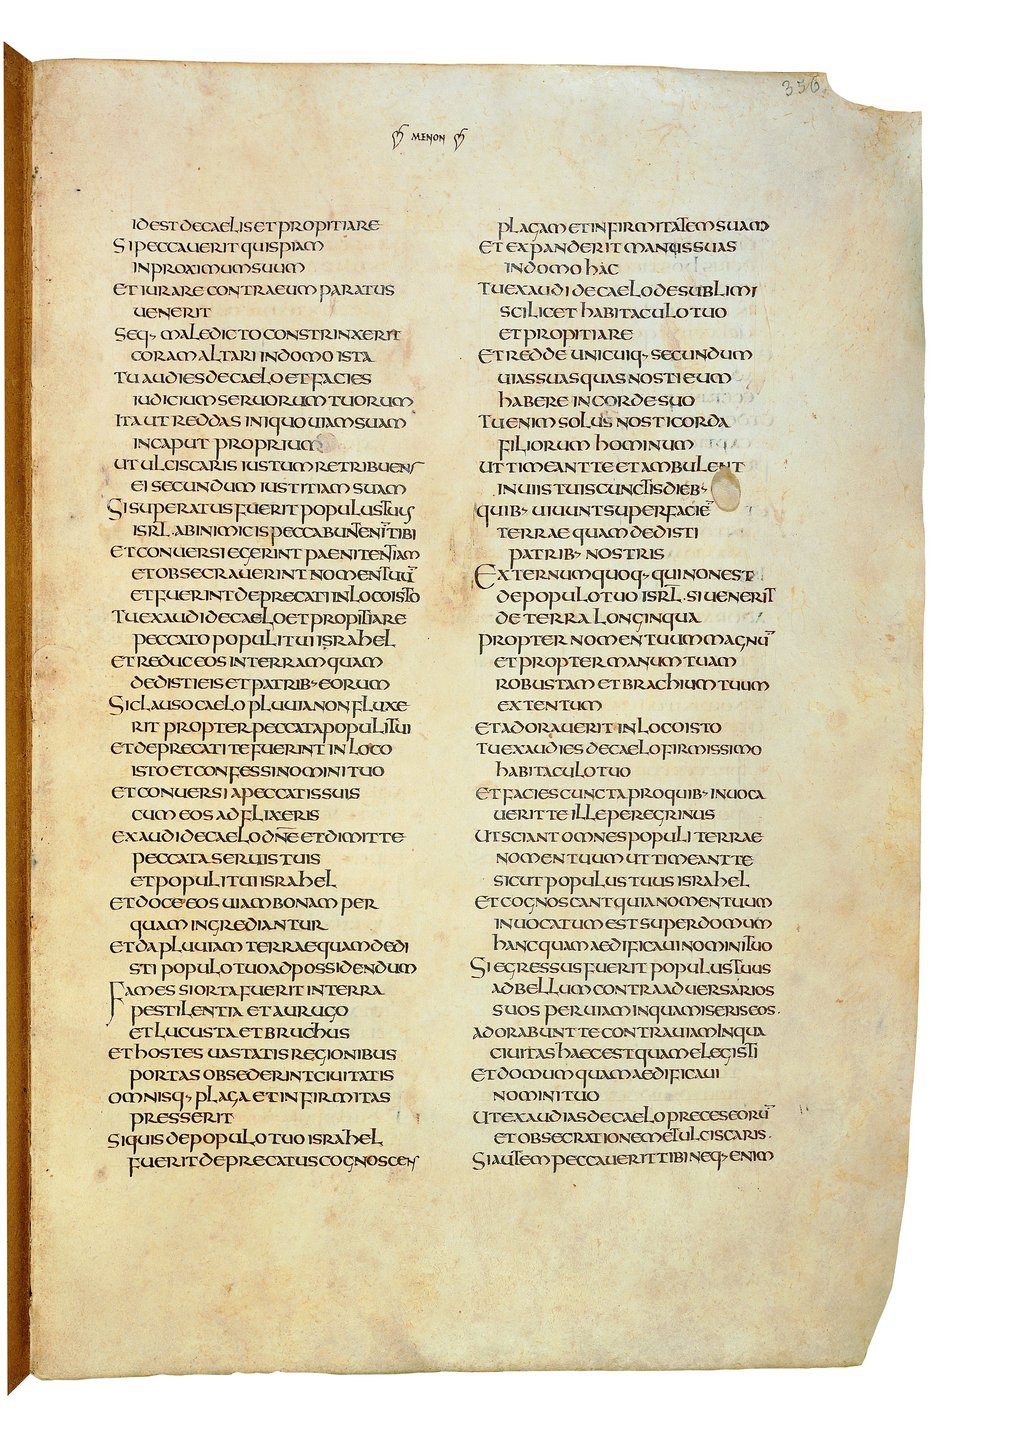 356
MENON
IDESTDECAELISETPROPITIARE
SIPECCAUERITQUISPIAM
INPROXIMUMSUUM
ETIURARECONTRAEUMPARATUS
UENERIT
SEQ· MALEDICTOCONSTRINXERIT
CORAMALTARIINDOMOISTA
TUAUDIESDECAELOETFACIES
IUDICIUMSERUORUMTUORUM
ITAUTREDDASINIQUOUIAMSUAM
INCAPUTPROPRIUM
UTULCISCARISIUSTUMRETRIBUENS
EISECUNDUMIUSTITIAMSUAM
SISUPERATUSFUERITPOPULUSTUUS
ISRL·ABINIMICISPECCABUNTENIMTIBI
ETCONUERSIEGERINTPAENITENTIAM
ETOBSECRAUERINTNOMENTUŪ
ETFUERINTDEPRECATIINLOCOISTO
TUEXAUDIDECAELOETPROPITIARE
PECCATOPOPULITUIISRAHEL
ETREDUCEOSINTERRAMQUAM
DEDISTIEISETPATRIB·EORUM
SICLAUSOCAELOPLUUIANONFLUXE
RITPROPTERPECCATAPOPULITUI
ETDEPRECATITEFUERINTINLOCO
ISTOETCONFESSINOMINITUO
ETCONUERSIAPECCATISSUIS
CUMEOSADFLIXERIS
EXAUDIDECAELODN̄EETDIMITTE
PECCATASERUISTUIS
ETPOPULITUIISRAHEL
ETDOCEEOSUIAMBONAMPER
QUAMINGREDIANTUR
ETDAPLUUIAMTERRAEQUAMDEDI
STIPOPULOTUOADPOSSIDENDUM
FAMESSIORTAFUERITINTERRA
PESTILENTIAETAURUGO
ETLUCUSTAETBRUCHUS
ETHOSTESUASTATISREGIONIBUS
PORTASOBSEDERINTCIUITATIS
OMNISQ·PLAGAETINFIRMITAS
PRESSERIT
SIQUISDEPOPULOTUOISRAHEL
FUERITDEPRECATUSCOGNOSCENS
PLAGAMETINFIRMITATEMSUAM
ETEXPANDERITMANUSSUAS
INDOMOHAC
TUEXAUDIDECAELODESUBLIMI
SCILICETHABITACULOTUO
ETPROPITIARE
ETREDDEUNICUIQ·SECUNDUM
UIASSUASQUASNOSTIEUM
HABEREINCORDESUO
TUENIMSOLUSNOSTICORDA
FILIORUMHOMINUM
UTTIMEANTTEETAMBULENT
INUIISTUISCUNCTISDIEB·
QUIB·UIUUNTSUPERFACIĒ
TERRAEQUAMDEDISTI
PATRIB·NOSTRIS
EXTERNUMQUOQ·QUINONEST
DEPOPULOTUOISRL·SIUENERIT
DETERRALONGINQUA
PROPTERNOMENTUUMMAGNŪ
ETPROPTERMANUMTUAM
ROBUSTAMETBRACHIUMTUUM
EXTENTUM
ETADORAUERITINLOCOISTO
TUEXAUDIESDECAELOFIRMISSIMO
HABITACULOTUO
ETFACIESCUNCTAPROQUIB·INUOCA
UERITTEILLEPEREGRINUS
UTSCIANTOMNESPOPULITERRAE
NOMENTUUMUTTIMEANTTE
SICUTPOPULUSTUUSISRAHEL
ETCOGNOSCANTQUIANOMENTUUM
INUOCATUMESTSUPERDOMUM
HANCQUAMAEDIFICAUINOMINITUO
SIEGRESSUSFUERITPOPULUSTUUS
ADBELLUMCONTRAADUERSARIOS
SUOSPERUIAMINQUAMISERISEOS·
ADORABUNTTECONTRAUIAMINQUA
CIUITASHAECESTQUAMELEGISTI
ETDOMUMQUAMAEDIFICAUI
NOMINITUO
UTEXAUDIASDECAELOPRECESEORŪ
ETOBSECRATIONEMETULCISCARIS·
SIAUTEMPECCAUERITTIBINEQ·ENIM